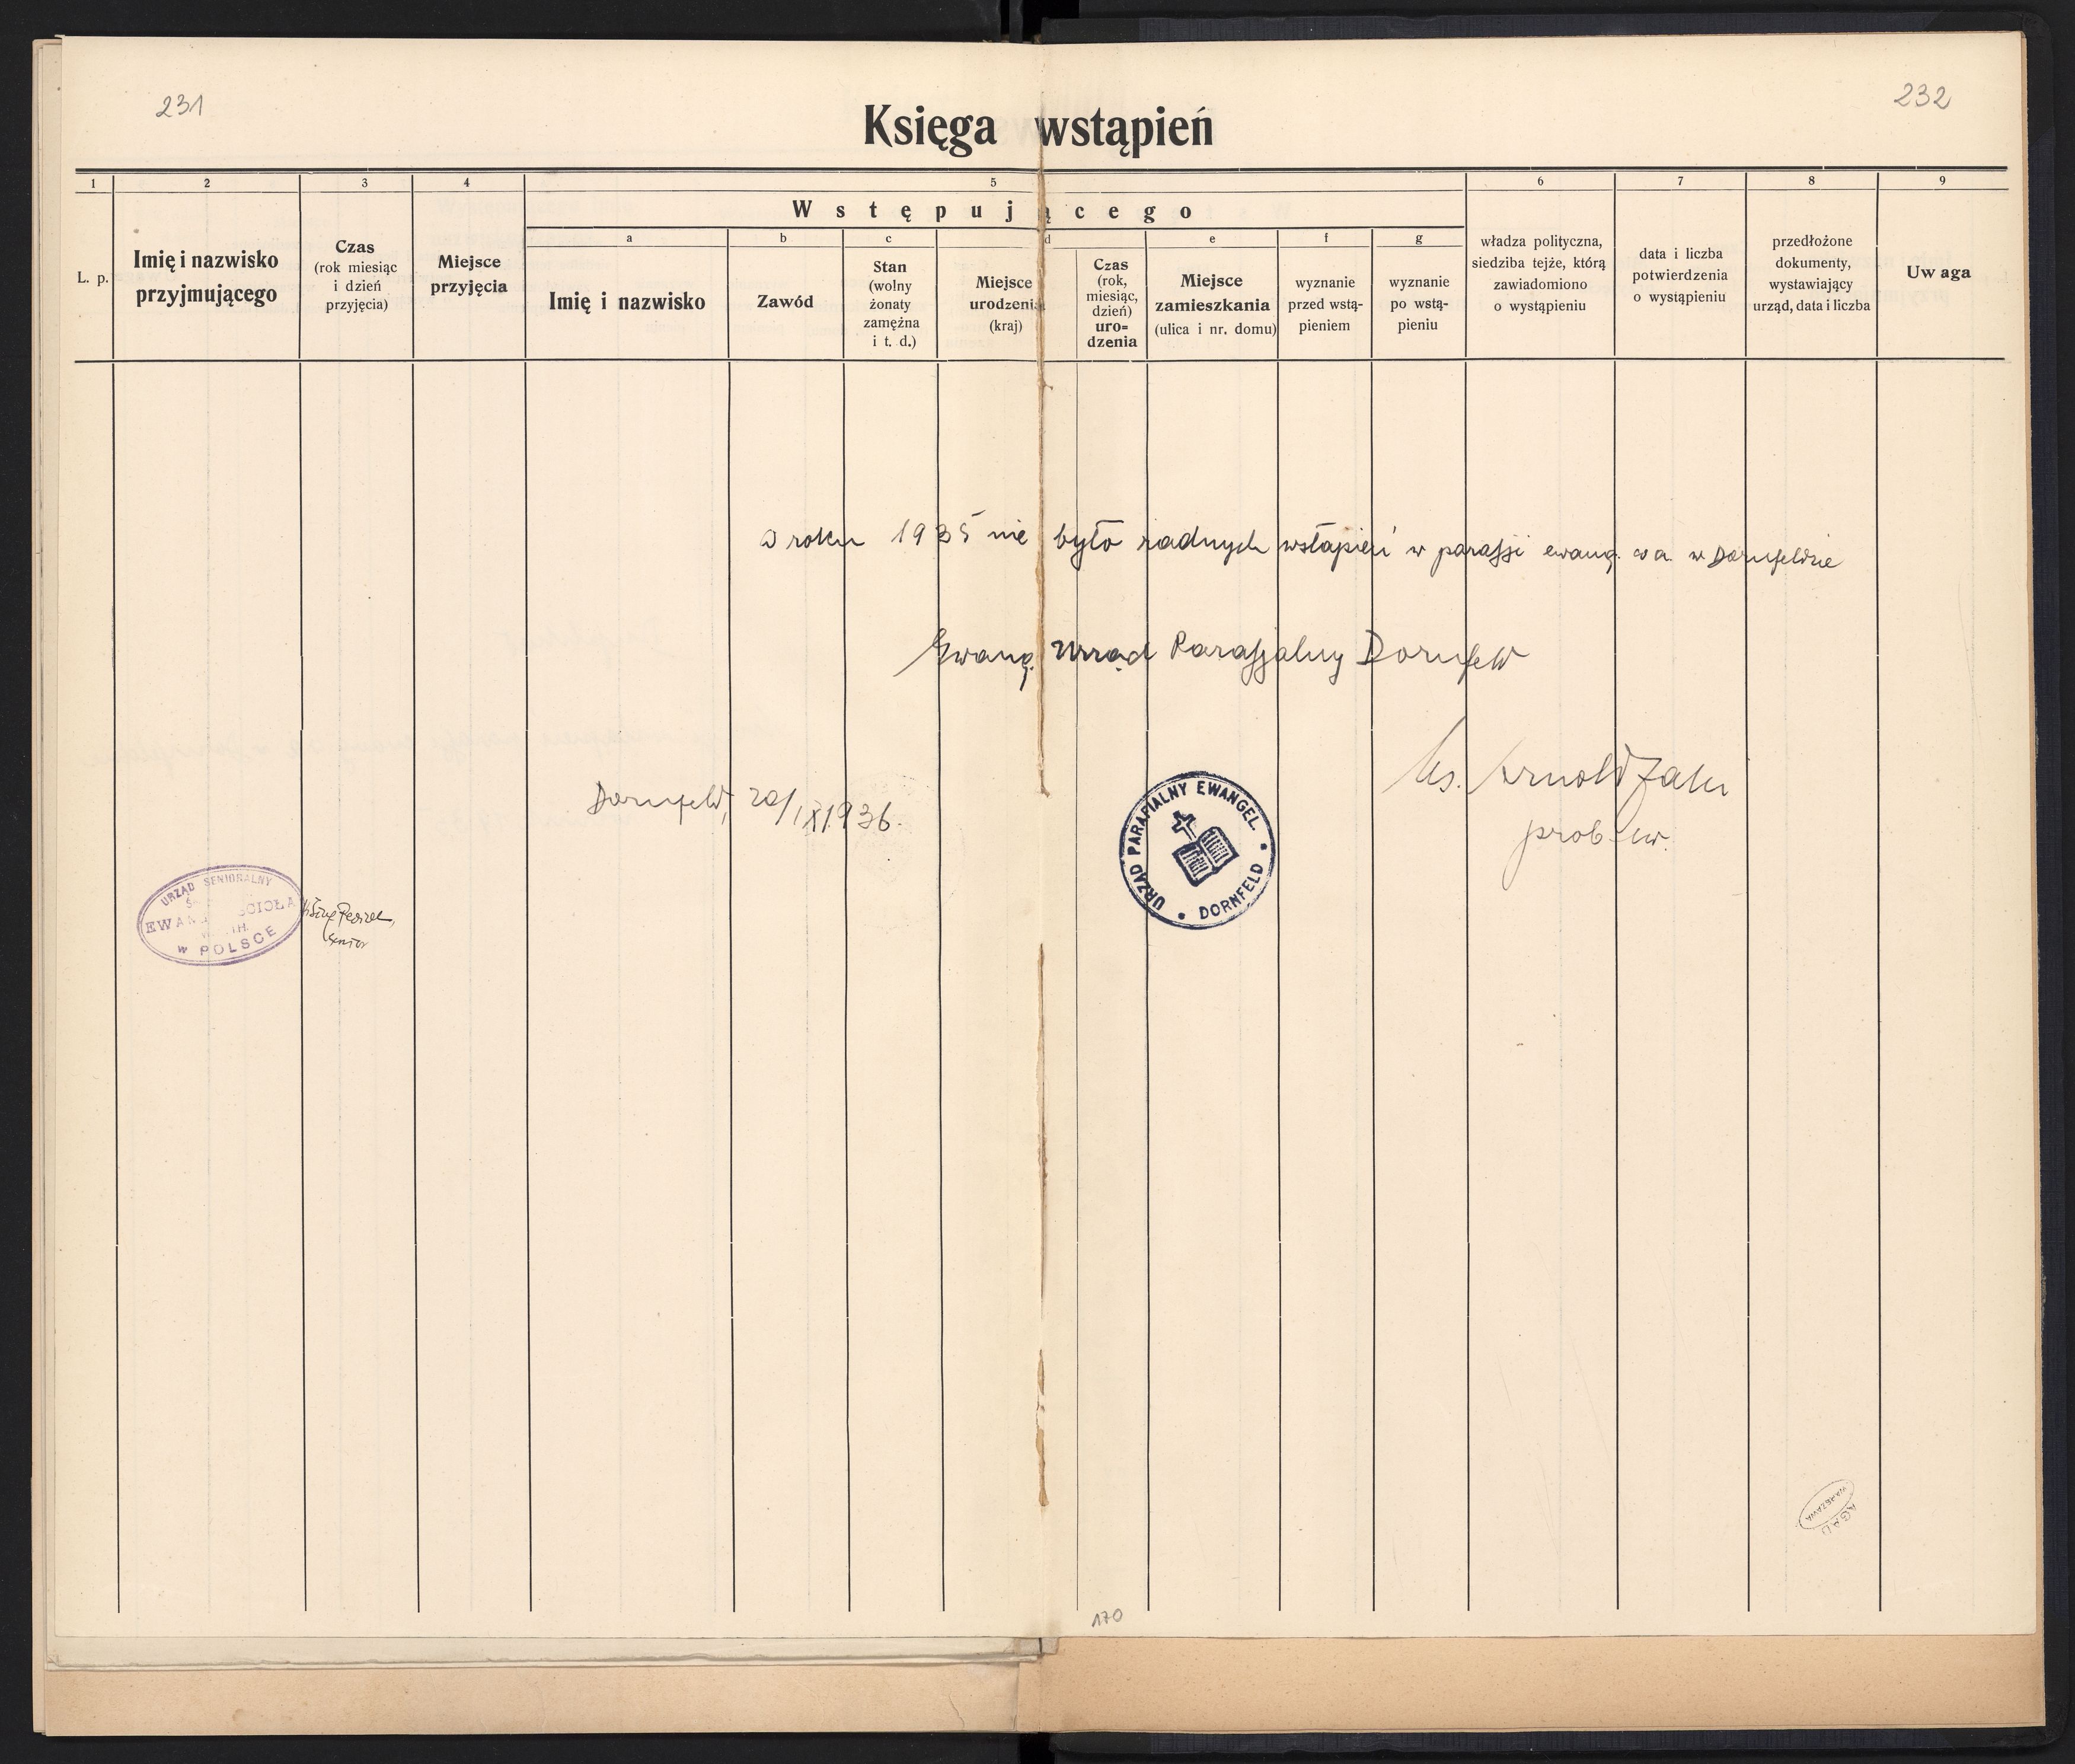 231
232
Księga wstąpień
1 2 3 4 5 6 7 8 9
Wstępującego
a b c d e f g
L. p.
Imię i nazwisko
przyjmującego
Czas
(rok miesiąc
i dzień
przyjęcia)
Miejsce
przyjęcia
Imię i nazwisko
Zawód
Stan
(wolny
żonaty
zamężna
i t. d.)
Miejsce
urodzenia
(kraj)
Czas
(rok,
miesiąc,
dzień)
uro=
dzenia
Miejsce
zamieszkania
(ulica i nr. domu)
wyznanie
przed wstą-
pieniem
wyznanie
po wstą-
pieniu
władza polityczna,
siedziba tejże, którą
zawiadomiono
o wystąpieniu
data i liczba
potwierdzenia
o wystąpieniu
przedłożone
dokumenty,
wystawiający
urząd, data i liczba
Uwaga
W roku 1935 nie było żadnych wstąpień w parafji ewang. w Dornfeldzie
Ewang. Urząd Parafjalny Dornfeld
Ks. Arnold Zahn
prob. ew.
Dornfeld, 20/ 1936.
URZĄD PARAFIALNY EWANGEL.
DORNFELD
URZĄD SENIORALNY
EWANG KOŚCIOŁA
w POLSCE
senior
AGAD
WARSZAWA
170